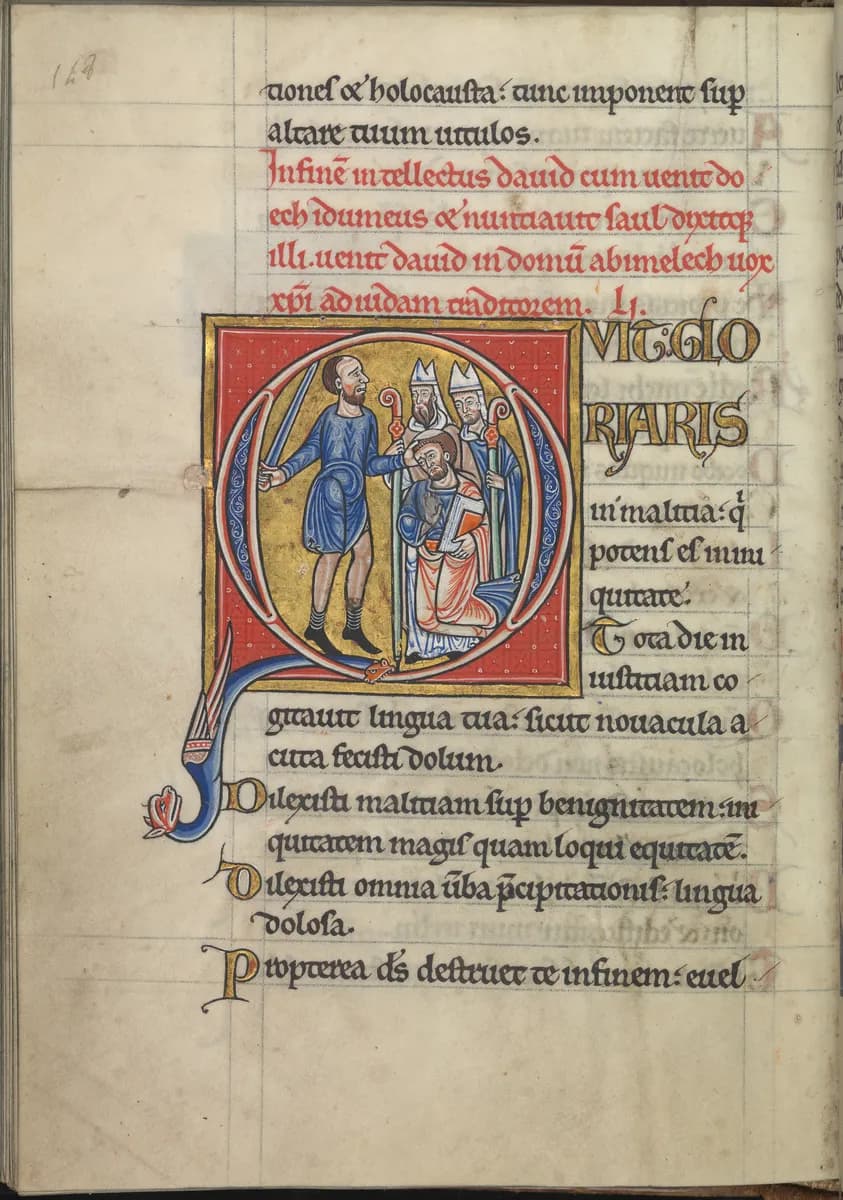 148
tiones & holocausta: tunc imponent sup̄
altare tuum uitulos.
Infinē intellectus dauid cum uenit do
ech idumeus & nuntiauit saul dixitq;
illi. uenit dauid in domū abimelech uox
xp̄i ad iudam traditorem. Lj.
QVIT: GLO
RIARIS
in malitia: qͥ
potens es in ini
quitate.
Tota die in
iustitiam co
gitauit lingua tua: sicut nouacula a
cuta fecisti dolum.
Dilexisti malitiam sup̄ benignitatem: ini
quitatem magis quam loqui equitatē.
Dilexisti omnia ūba p̄cipitationis: lingua
dolosa.
Propterea ds̄ destruet te infinem: euel